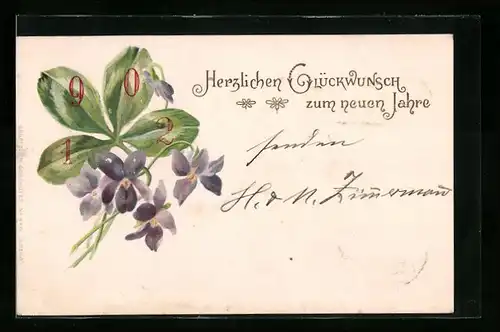 1902
Herzlichen Glückwunsch
zum neuen Jahre
senden
H. & N. Zimmermann